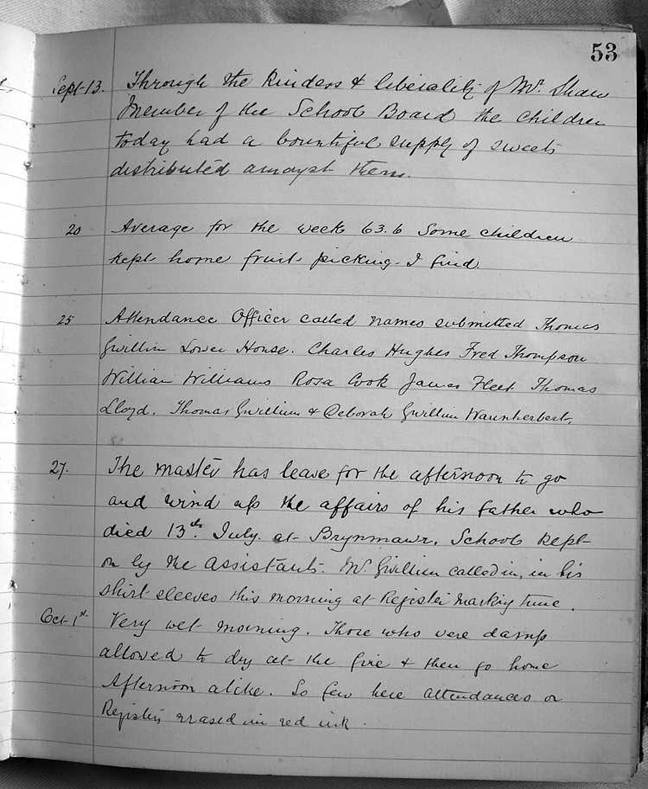 53
Sept-13. Through the kindess & liberality of Mr. Shaw
Member of the School Board the children
today had a bountiful supply of sweets
distributed amongst them.
20 Average for the week 63.6 Some children
kept home fruit picking I find
25 Attendance Officer called names submitted Thomas
Gwillim Lower House. Charles Hughes Fred Thompson
William Williams Rosa Cook James Fleet Thomas
Lloyd. Thomas Gwillim & Deborah Gwillim Waunherbert.
27. The master has leave for the afternoon to go
and wind up the affairs of his father who
died 13th July. at Brynmawr. School kept
on by the Assistants. Mr Gwillim called in, in his
shirt sleeves this morning at Register marking time.
Oct-1st. Very wet morning. Those who were damp
allowed to dry at the fire & then go home
Afternoon alike. So few here attendances on
Registers erased in red ink.